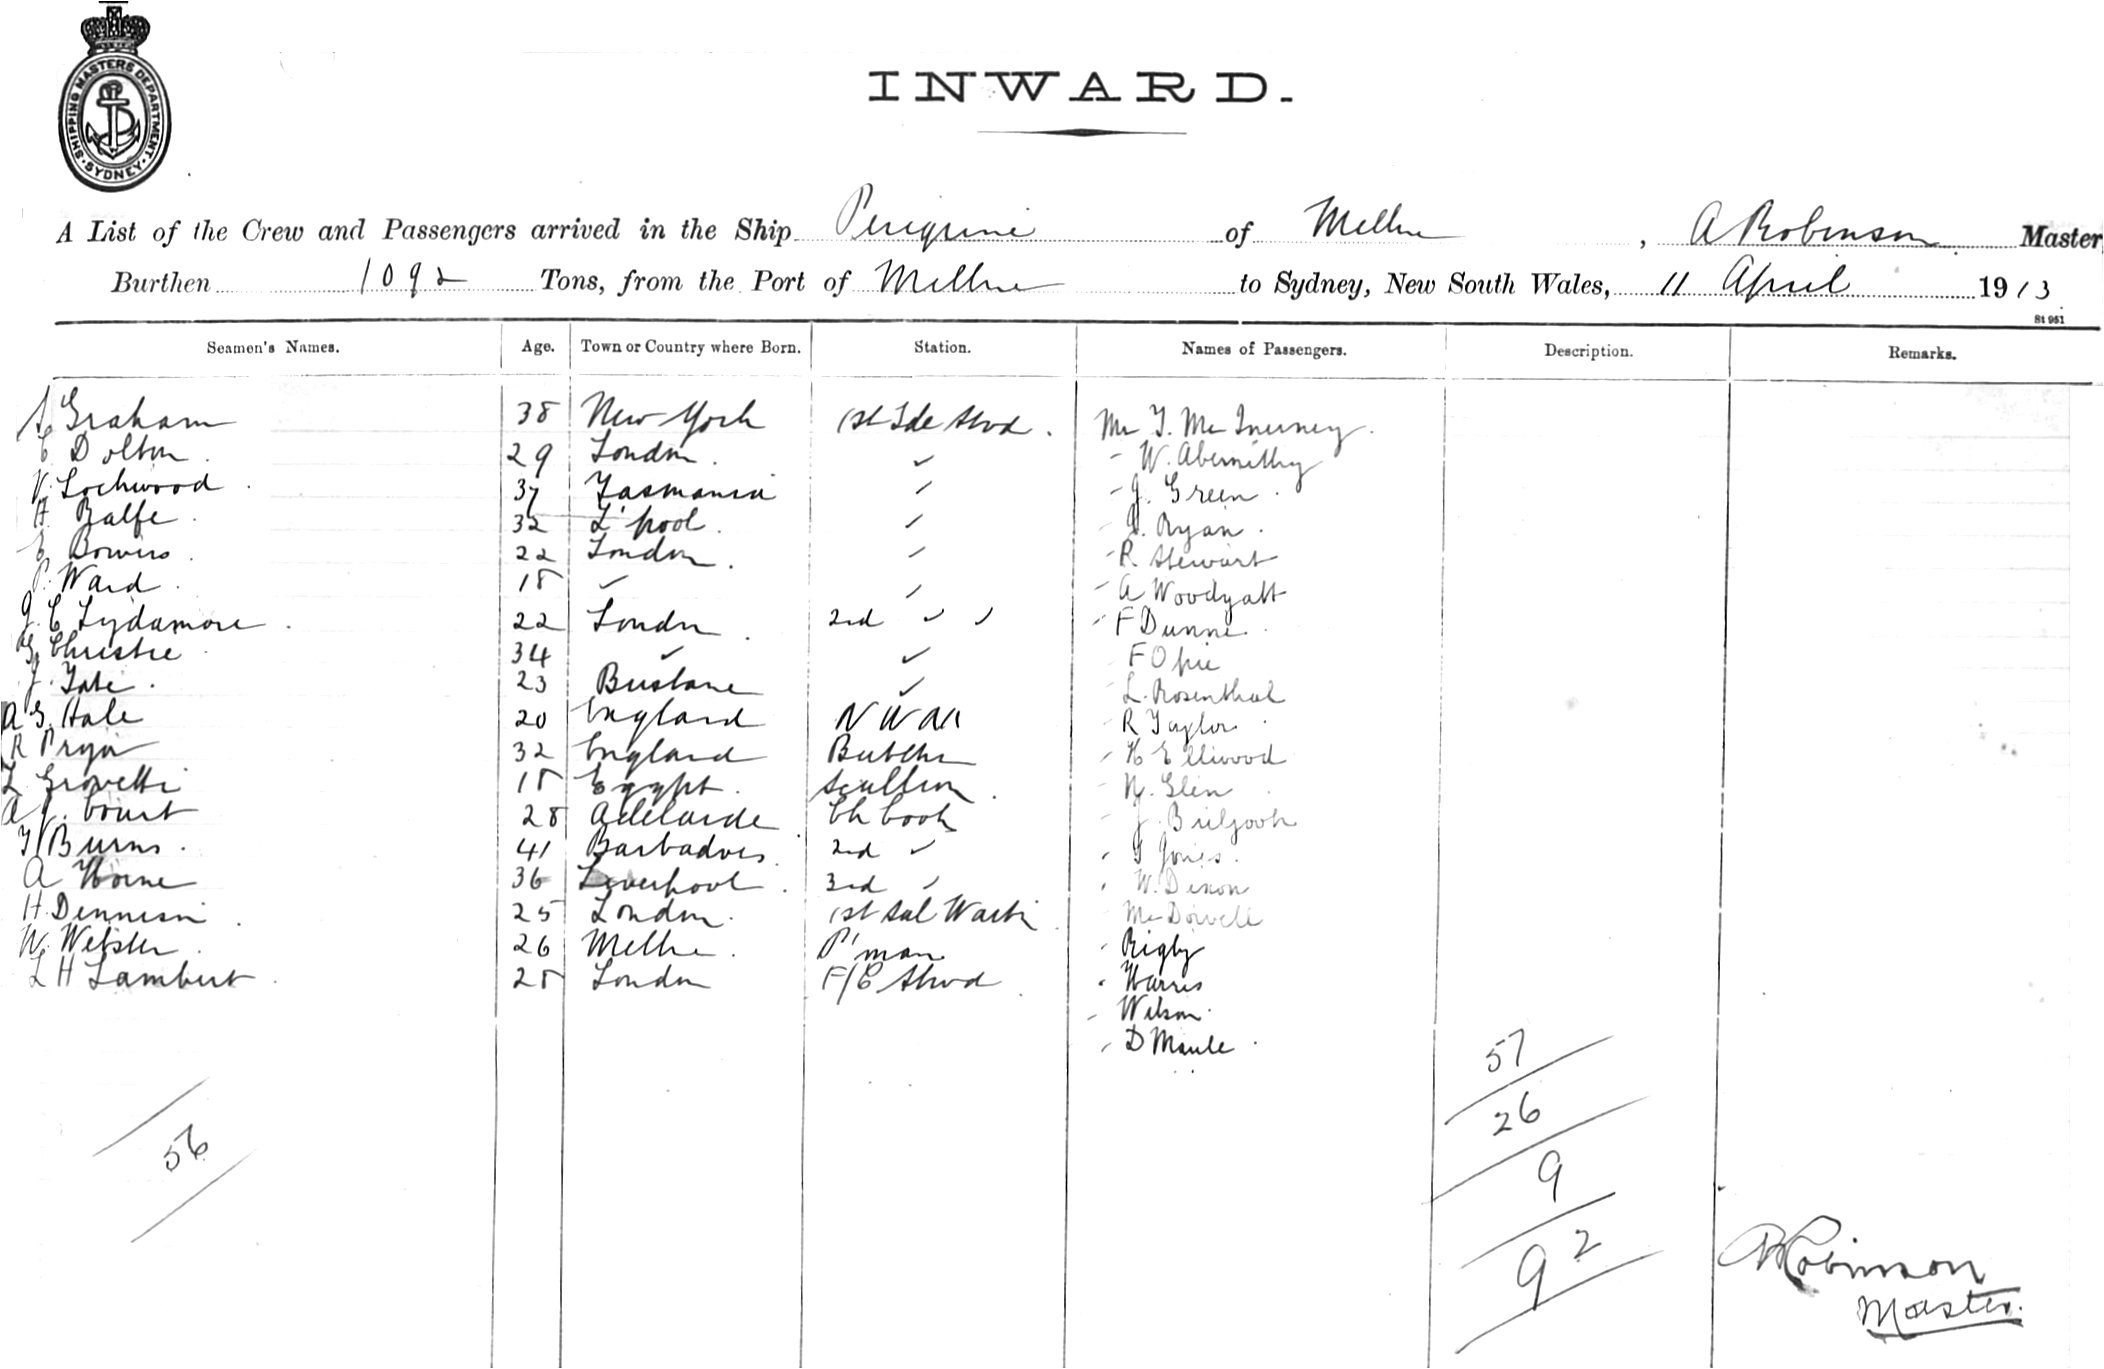 SHIPPING MASTERS DEPARTMENT · SYDNEY ·
INWARD.
A List of the Crew and Passengers arrived in the Ship Peregrine of Melbne, A Robinson Master
Burthen 1092 Tons, from the Port of Melbne to Sydney, New South Wales, 11 April 1913
St 951
Seamen's Names. Age. Town or Country where Born. Station. Names of Passengers. Description. Remarks.
Graham 38 New York 1st Sde Stwd. Mr T. McInerney.
C Dolton. 29 London. ✓ " W. Abernithy
V. Lockwood 37 Tasmania ✓ " J. Green
H Balfe. 32 L'pool. ✓ " Ryan.
E Bowers 22 London. ✓ " R Stewart
P. Ward. 18 ✓ ✓ " A Woodyatt
J. C Lydamore. 22 London. 2nd ✓ ✓ " F Dunne.
G Christie 34 ✓ ✓ F Opie
J. Tate. 23 Brisbane ✓ L. Rosenthal
A G. Hale 20 England R Taylor
R Pryor 32 England Butcher H Elliwood
L Grovetti 18 Egypt. Scullion. N. Glen
A J. Court 28 Adelaide. Ch Cook J.
T Burns. 41 Barbadoes. 2nd ✓ T Jones.
A Horne 36 Liverpool. 3rd ✓ W. Dixon
H. Dennison. 25 London. 1st Sal Waiter McDowell
W. Webster. 26 Melbne. P'man Rigby
L H Lambert. 28 London F/C Stwd Harris
Wilson.
D Maule.
57
26
56
9
92
A Robinson
Master.